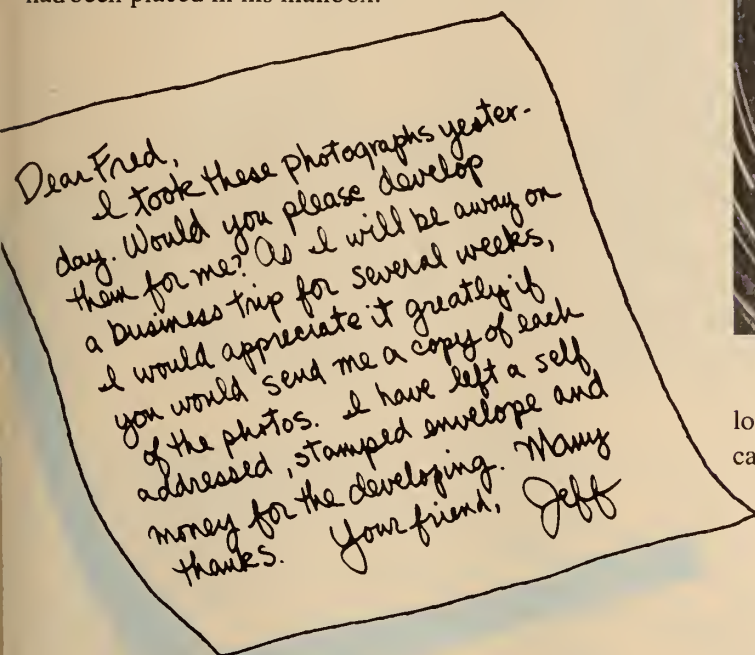 had been placed in his mailbox.
Dear Fred,
I took these photographs yester-
day. Would you please develop
them for me? As I will be away on
a business trip for several weeks,
I would appreciate it greatly if
you would send me a copy of each
of the photos. I have left a self
addressed, stamped envelope and
money for the developing. Many
thanks. Your friend, Jeff
lo
ca